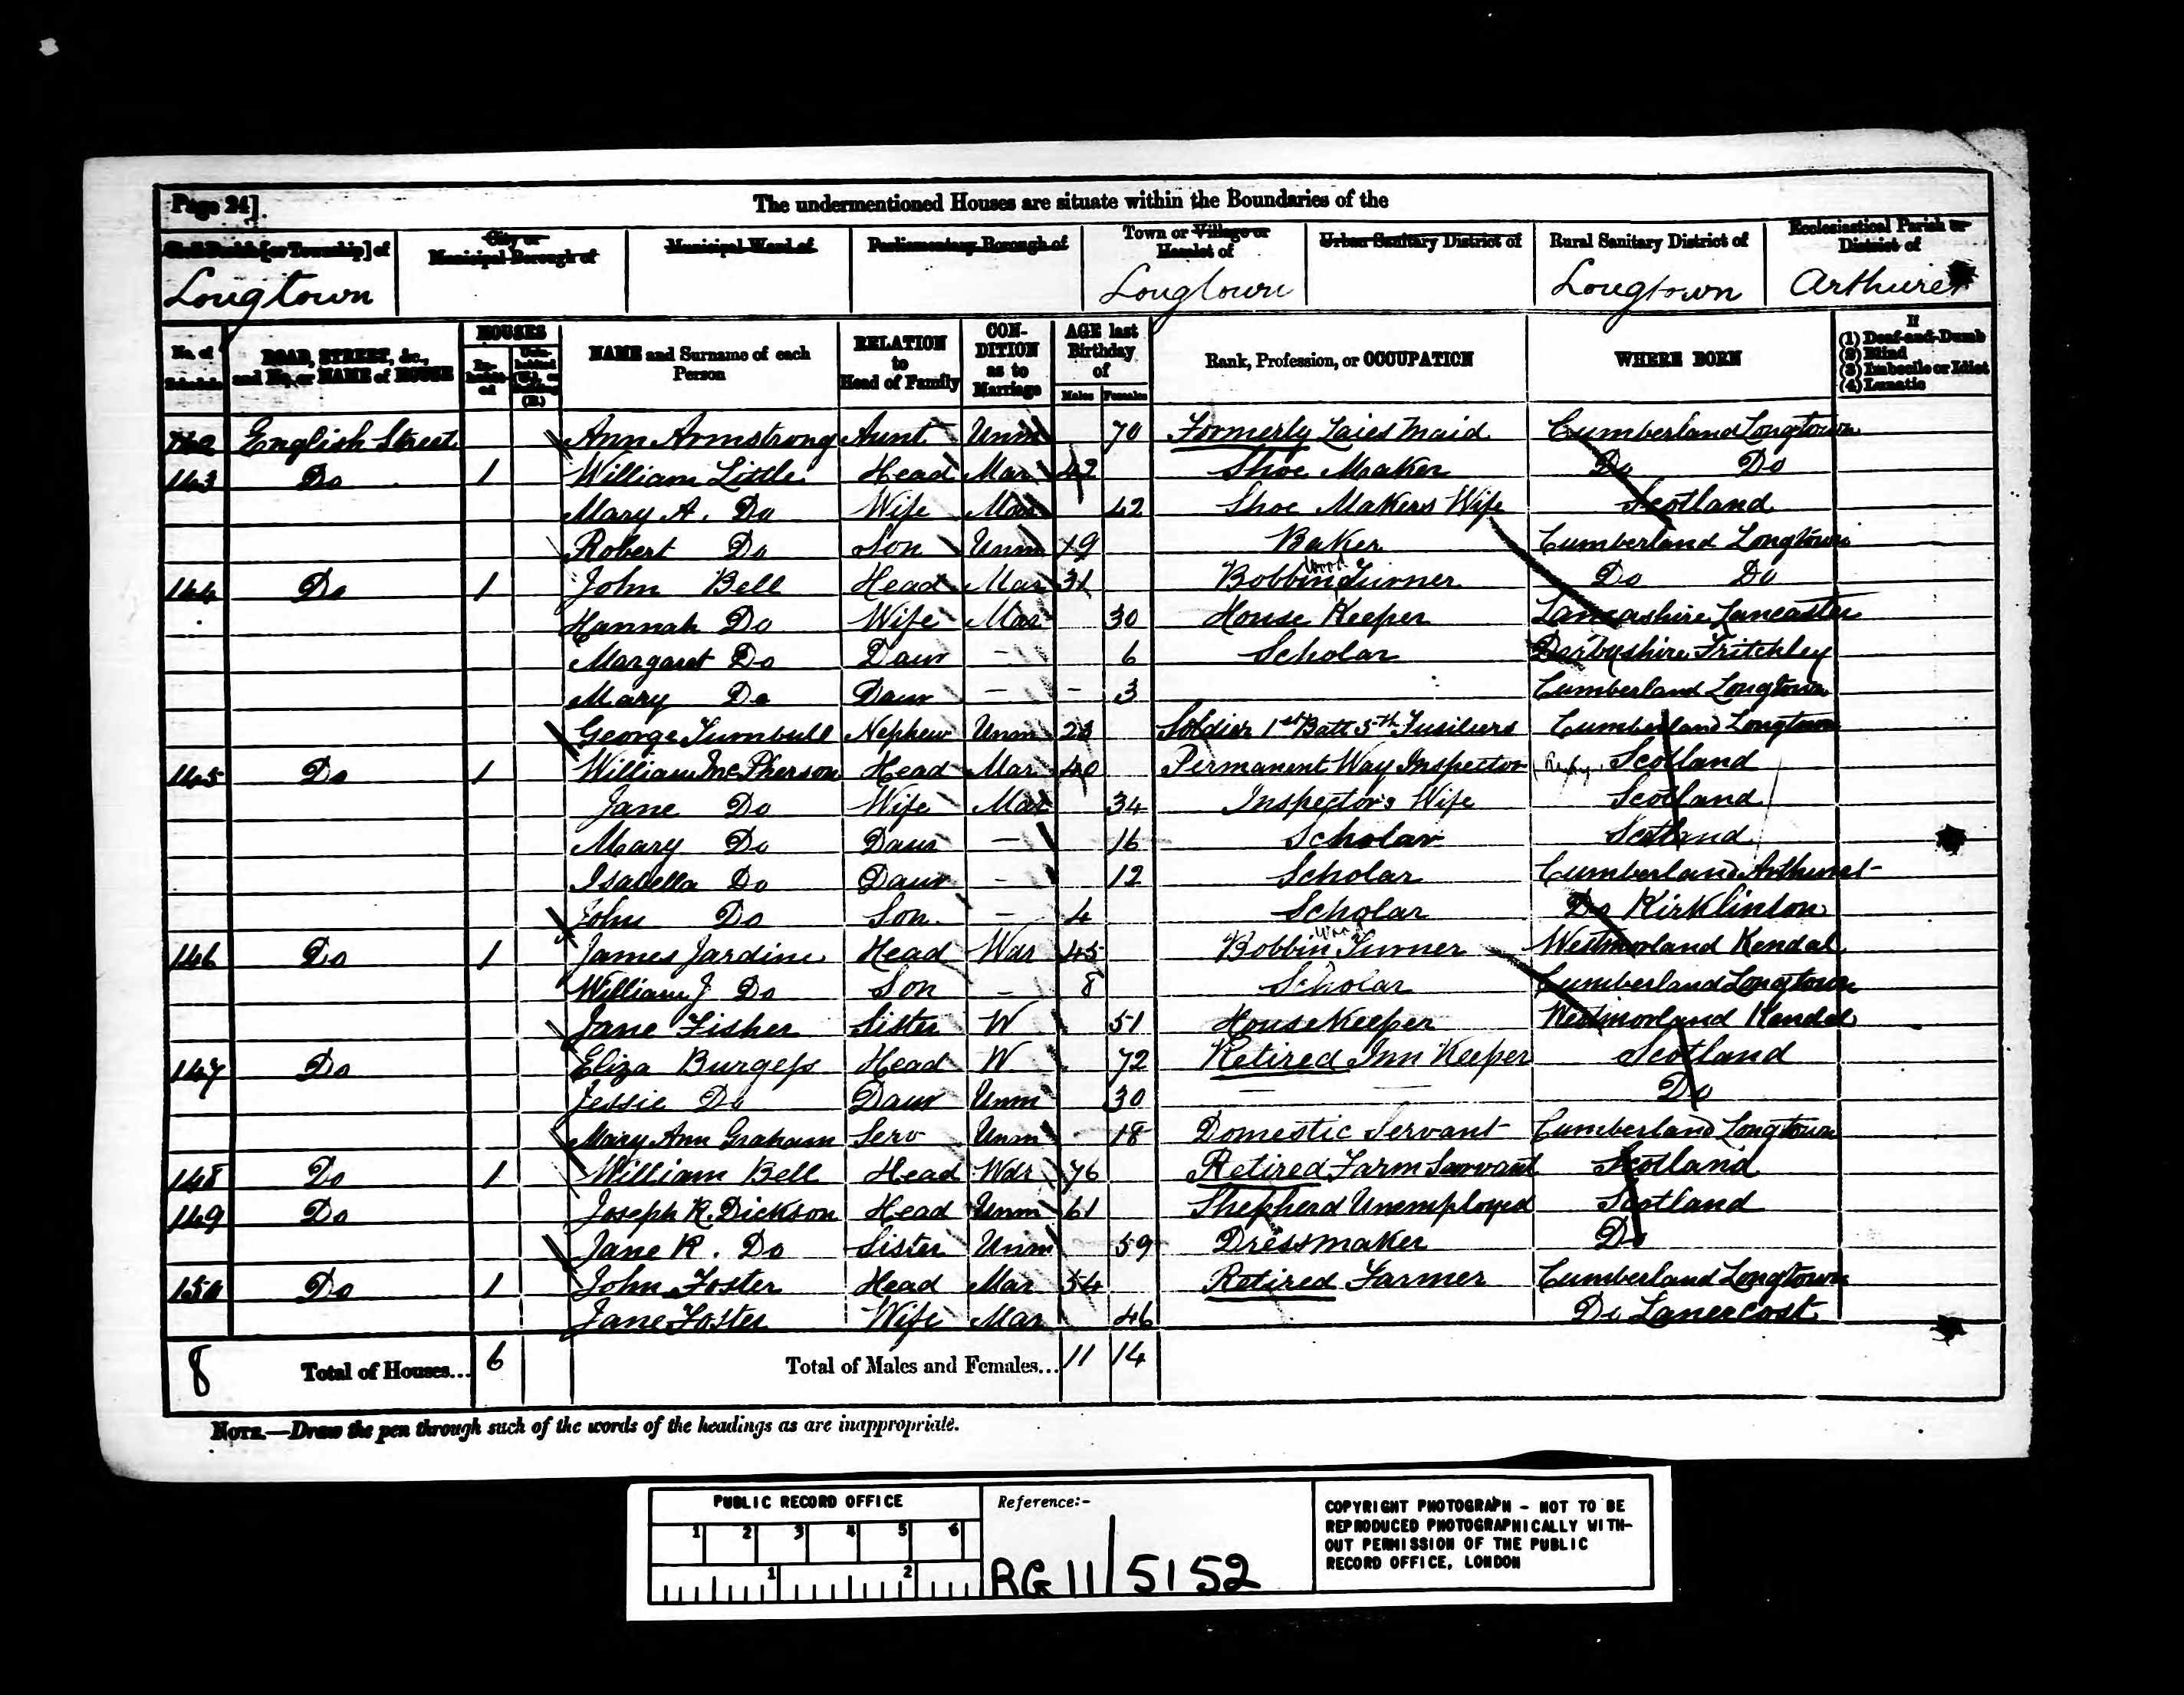 Page 24]
The undermentioned Houses are situate within the Boundaries of the
Civil Parish [or Township] of
City or Municipal Borough of
Municipal Ward of
Parliamentary Borough of
Town or Village or Hamlet of
Urban Sanitary District of
Rural Sanitary District of
Ecclesiastical Parish or District of
Longtown Longtown Longtown Arthuret
No. of Schedule
ROAD, STREET, &c., and No. or NAME of HOUSE
HOUSES
In-habit-ed
Unin-habited (U.), or Building (B.)
NAME and Surname of each Person
RELATION to Head of Family
CON-DITION as to Marriage
AGE last Birthday of
Males Females
Rank, Profession, or OCCUPATION
WHERE BORN
If
(1) Deaf-and-Dumb
(2) Blind
(3) Imbecile or Idiot
(4) Lunatic
142 English Street Ann Armstrong Aunt Unm 70 Formerly Laies Maid Cumberland Longtown
143 Do 1 William Little Head Mar 42 Shoe Maker Do Do
Mary A. Do Wife Mar 42 Shoe Makers Wife Scotland
Robert Do Son Unm 19 Baker Cumberland Longtown
144 Do 1 John Bell Head Mar 31 Bobbin Wood Turner Do Do
Hannah Do Wife Mar 30 House Keeper Lancashire Lancaster
Margaret Do Daur - 6 Scholar Derbyshire Fritchley
Mary Do Daur - - 3 Cumberland Longtown
George Turnbull Nephew Unm 23 Soldier 1st Batt 5th Fusiliers Cumberland Longtown
145 Do 1 William McPherson Head Mar 40 Permanent Way Inspector Scotland
Jane Do Wife Mar 34 Inspectors Wife Scotland
Mary Do Daur - 16 Scholar Scotland
Isabella Do Daur - 12 Scholar Cumberland Arthuret
John Do Son - 4 Scholar Do Kirklinton
146 Do 1 James Jardine Head Wdr 45 Bobbin Wood Turner Westmorland Kendal
William J Do Son - 8 Scholar Cumberland Longtown
Jane Fisher Sister W 51 House Keeper Westmorland Kendal
147 Do Eliza Burgess Head W 72 Retired Inn Keeper Scotland
Jessie Do Daur Unm 30 — — Do
Mary Ann Graham Serv Unm 18 Domestic Servant Cumberland Longtown
148 Do 1 William Bell Head Wdr 76 Retired Farm Servant Scotland
149 Do Joseph R. Dickson Head Unm 61 Shepherd Unemployed Scotland
Jane R. Do Sister Unm 59 Dressmaker Do
150 Do 1 John Foster Head Mar 54 Retired Farmer Cumberland Longtown
Jane Foster Wife Mar 46 Do Lanercost
8 Total of Houses... 6 Total of Males and Females... 11 14
NOTE.—Draw the pen through such of the words of the headings as are inappropriate.
PUBLIC RECORD OFFICE
1 2 3 4 5 6
1 2
Reference:-
RG 11 / 5152
COPYRIGHT PHOTOGRAPH - NOT TO BE
REPRODUCED PHOTOGRAPHICALLY WITH-
OUT PERMISSION OF THE PUBLIC
RECORD OFFICE, LONDON